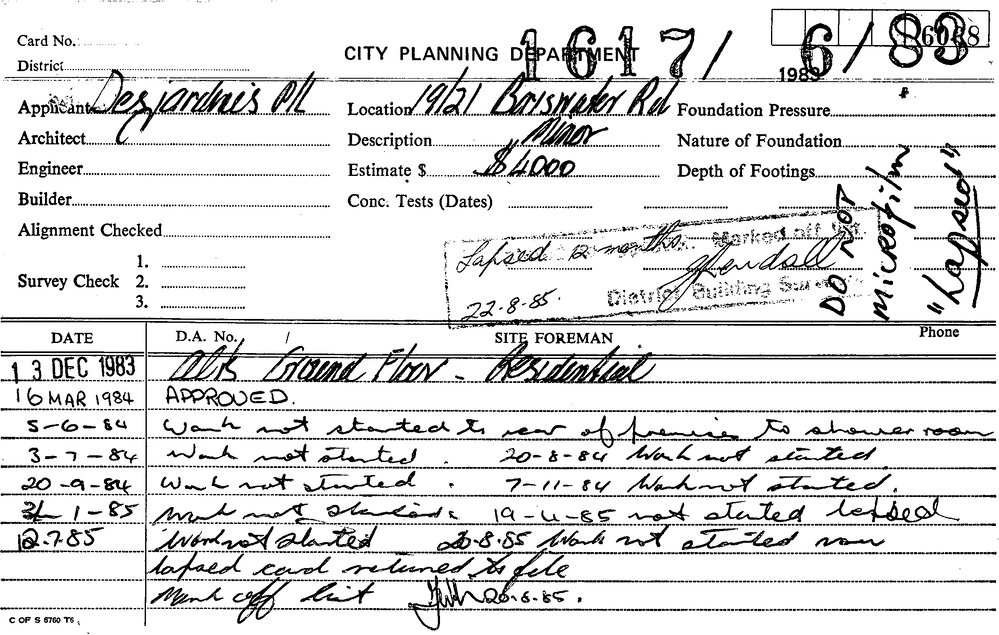 Card No.
District
CITY PLANNING DEPARTMENT
1617/ 6/83
16068
1983
Applicant Desjardines P/L
Location 19/21 Boriswater Rd
Foundation Pressure
Architect
Description Minor
Nature of Foundation
Engineer
Estimate $ $4000
Depth of Footings
Builder
Conc. Tests (Dates)
Alignment Checked
Survey Check
1.
2.
3.
Lapsed 12 months. Marked off
22-8-85. District Building Surveyor
DO NOT
MICROFILM
"Lapsed"
Phone
DATE
D.A. No. /
SITE FOREMAN
13 DEC 1983 Alts Ground Floor - Residential
16 MAR 1984 APPROVED.
5-6-84 Work not started to rear of premises to shower room
3-7-84 Work not started. 20-8-84 Work not started
20-9-84 Work not started. 7-11-84 Work not started.
1-85 Work not started. 19-4-85 not started lapsed
12.7.85 Work not started 20-8-85 Work not started now
lapsed card returned to file
Mark off list 20-8-85.
C OF S 6760 T6